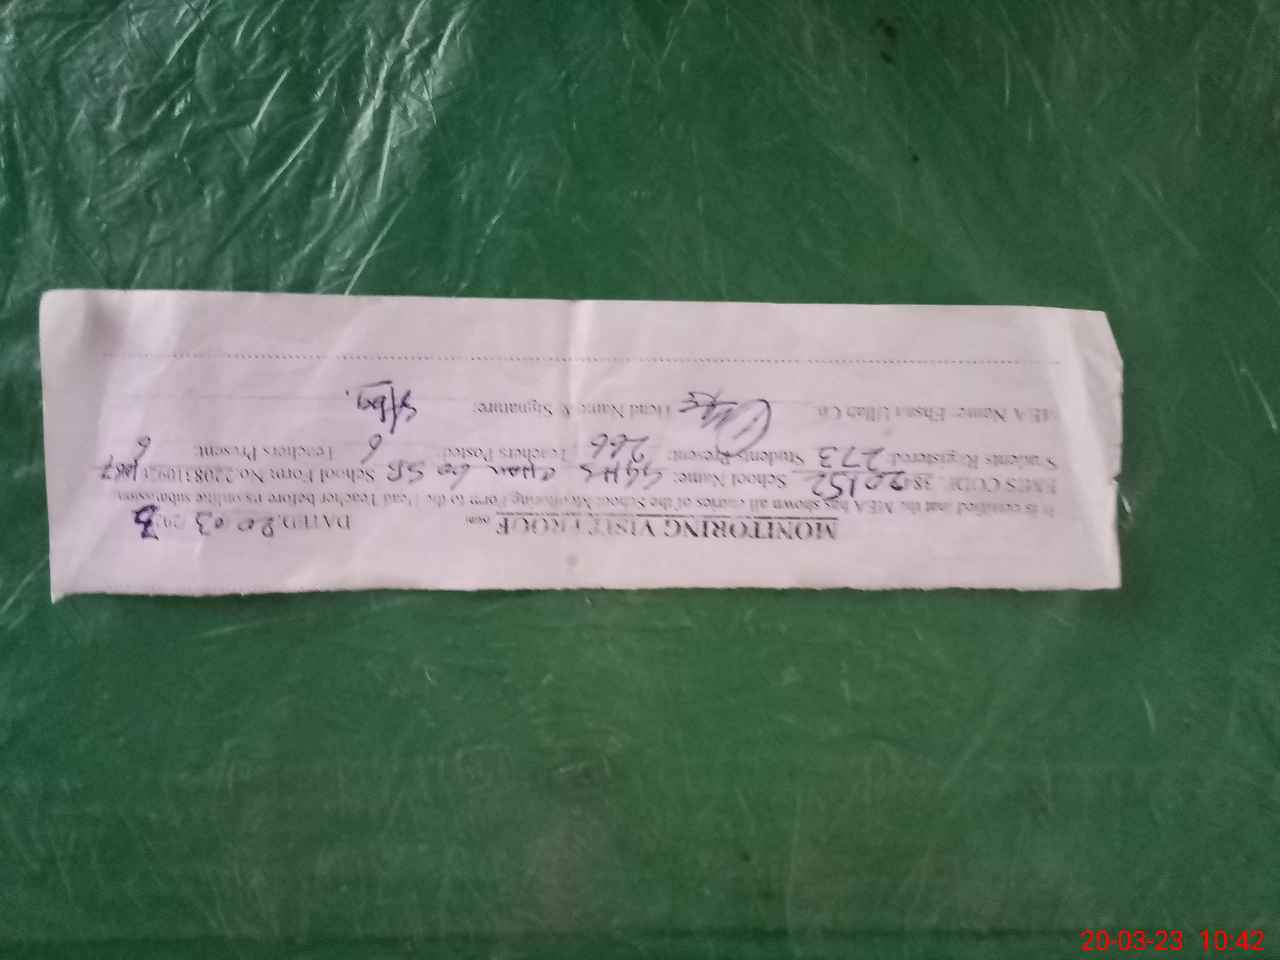 MONITORING VISIT PROOF
DATED. 20 03 /2023
It is certified that the MEA has shown all entries of the School Monitoring Form to the Head Teacher before its online submission
EMIS CODE 384 20152 School Name: GGHS Chan 60 SB School Form No.
Students Registered: 273 Students Present: 266 Teachers Posted: 6 Teachers Present: 6
MEA Name: Ehsan Ullah Head Name & Signature:
20-03-23 10:42